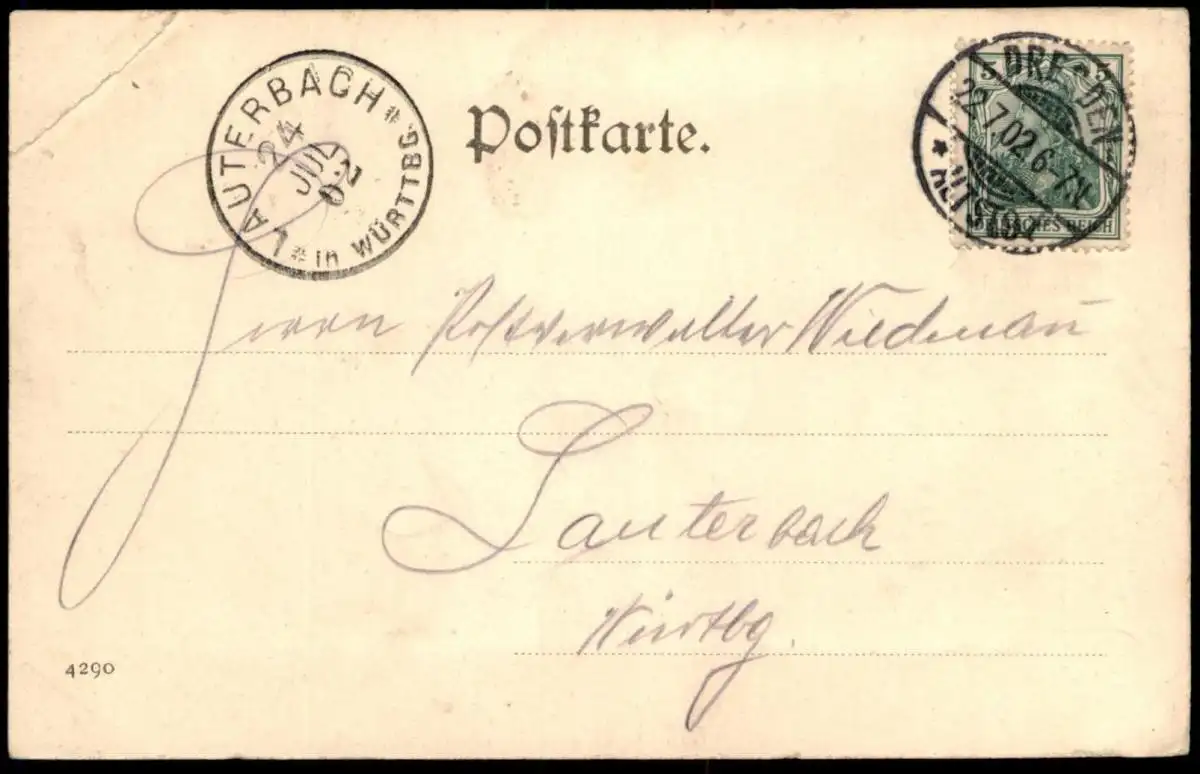 Postkarte.
LAUTERBACH
24
JUL
02
in WÜRTTBG
DRESDEN
22.7.02.6-7N.
* ALTSTDT.
5 5
DEUTSCHES REICH
Herrn Postverwalter Wiedmann
Lauterbach
Würtbg.
4290